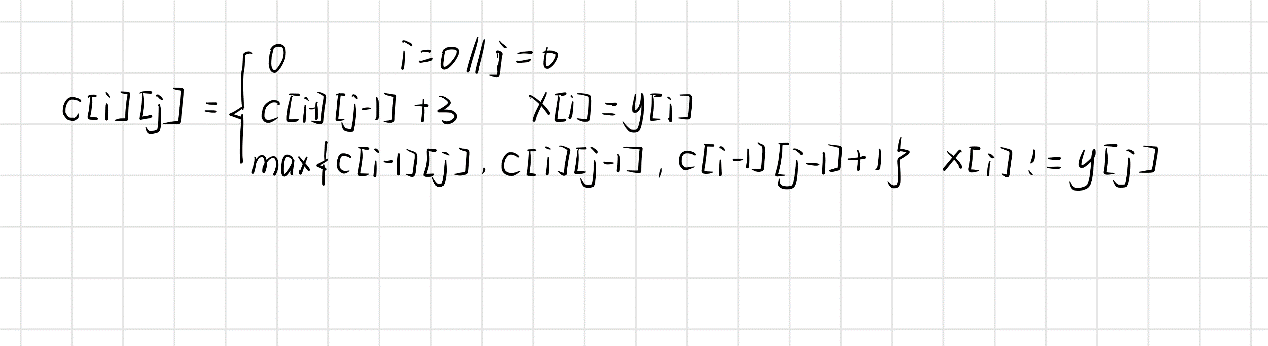 0 i=0//j=0
c[i][j] = { c[i-1][j-1] +3 x[i]=y[i]
max{c[i-1][j], c[i][j-1], c[i-1][j-1]+1} x[i]!=y[j]